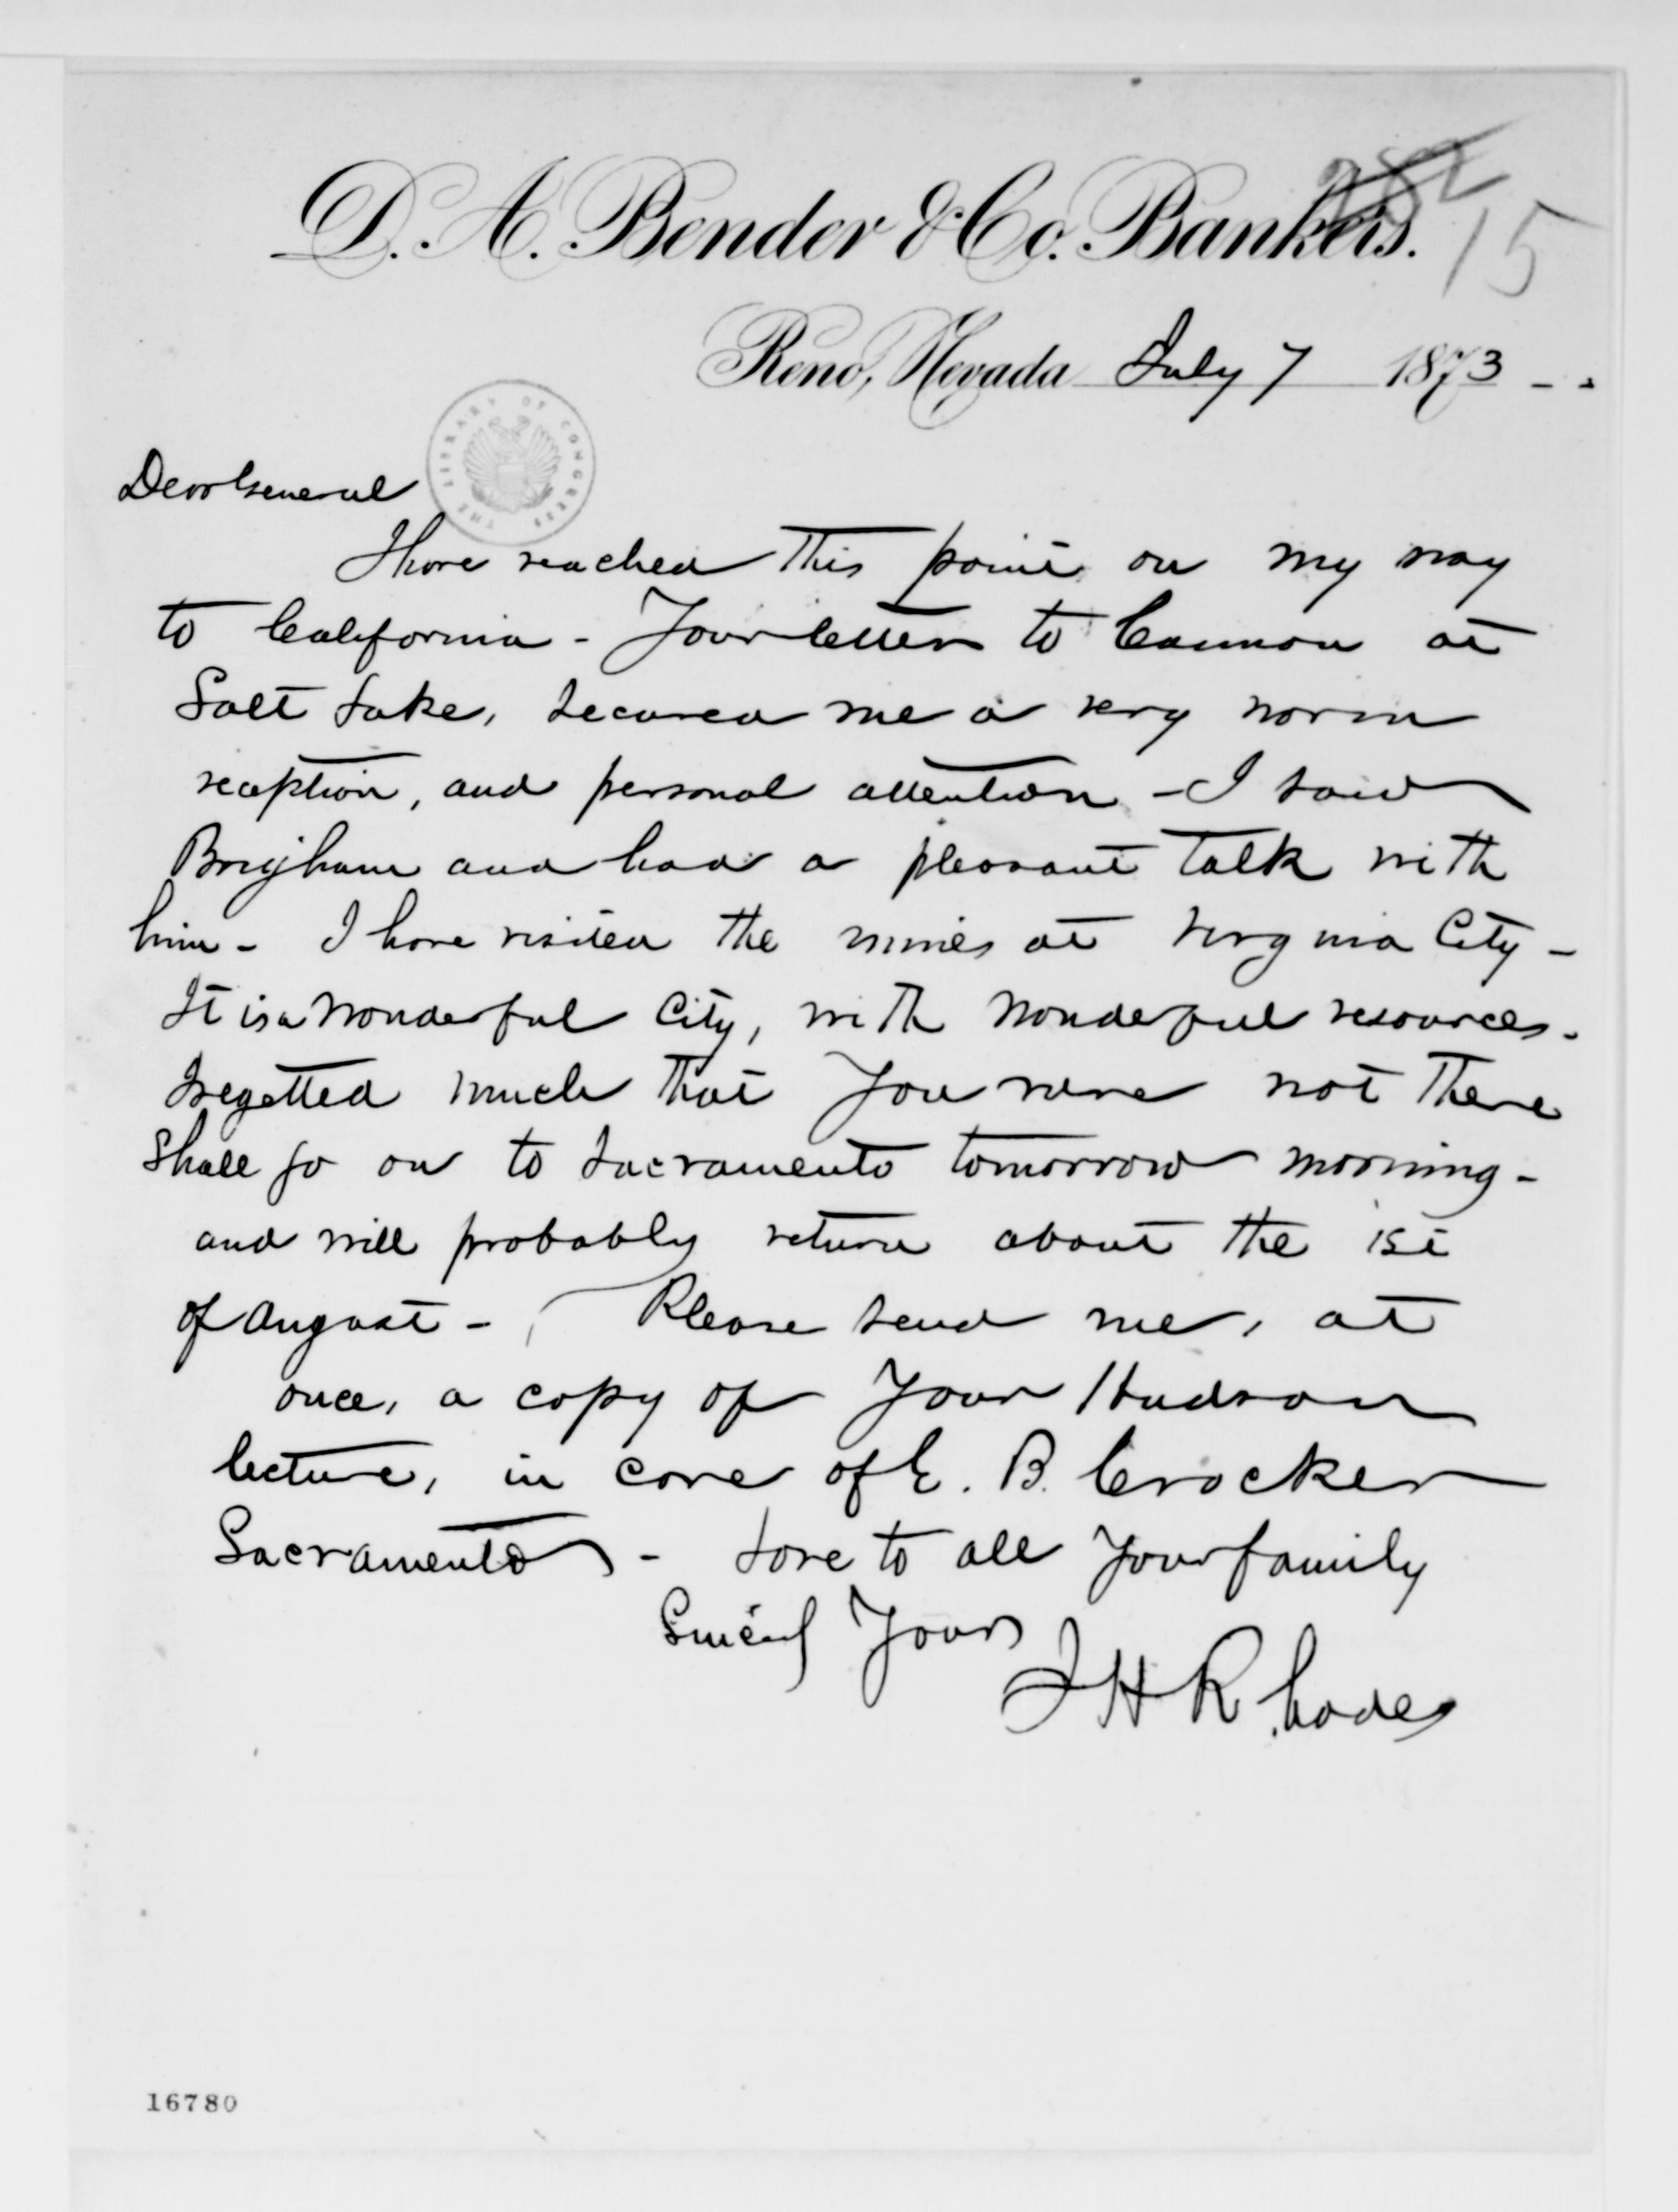 282
15
D. A. Bender & Co. Bankers.
Reno, Nevada July 7 1873 - -
THE LIBRARY OF CONGRESS
Dear General
I have reached this point on my way
to California - Your letter to Cannon at
Salt Lake, secured me a very warm
reception, and personal attention - I saw
Brigham and had a pleasant talk with
him - I have visited the mines at Virginia City -
It is a wonderful City, with wonderful resources.
I regetted much that you were not there
Shall go on to Sacramento tomorrow morning -
and will probably return about the 1st
of August - Please send me, at
once, a copy of your Hudson
lecture, in care of E. B. Crocker
Sacramento - Love to all your family
Sincerely Yours
J H Rhodes
16780